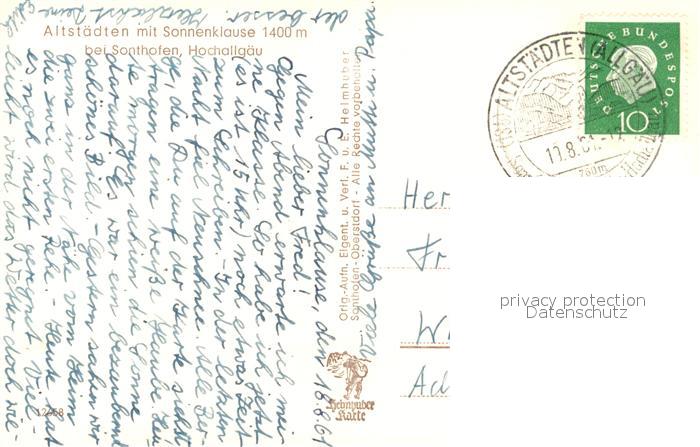 Altstädten mit Sonnenklause 1400 m
bei Sonthofen, Hochallgäu
Sonnenklause, den 10.8.61
Mein lieber Fred!
Gegen Abend erwarte ich mir
ne Klause. So habe ich jetzt
(es ist 15 Uhr) noch etwas Zeit
zum Schreiben. - In der letzten
Nacht fiel Neuschnee. Alle Ber-
ge, die Du auf der Karte siehst
trugen eine weiße Haube. Heu-
te morgen schien die Sonne
darauf. Es war ein
schönes Bild. - Gestern sahen wir
in der Nähe vom Heim
die zwei ersten Rehe. - Heute hat
es noch nicht geregnet. Viel-
leicht wird das Wetter doch wie-
der besser. Herzlichst Deine
Viele Grüße an Mutti u. Papa.
Orig.-Aufn. Eigent. u. Verl. F. u. E. Heimhuber
Sonthofen-Oberstdorf - Alle Rechte vorbehalten
Heimhuber
Karte
12468
DEUTSCHE BUNDESPOST
10
ALTSTÄDTEN (ALLGÄU)
10.8.61
760m
Her
Fr
W
Ad
privacy protection
Datenschutz